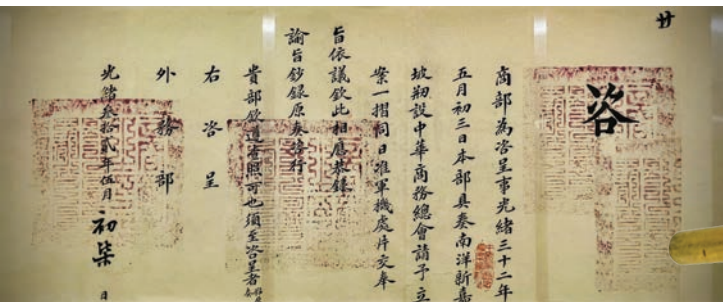 廿
咨
商部為咨呈事光緒三十二年
五月初三日本部具奏南洋新嘉
坡剏設中華商務總會請予立
案一摺同日准軍機處片交奉
旨依議欽此相應恭錄
諭旨鈔錄原奏咨行
貴部欽遵查照可也須至咨呈者
右咨呈
外務部
光緒叁拾貳年伍月初柒日